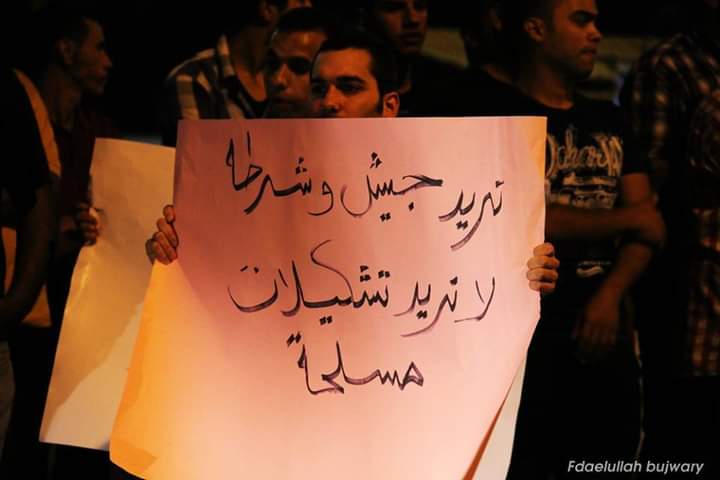 نريد جيش وشرطه
لا نريد تشكيلات
مسلحة
Fdaelullah bujwary